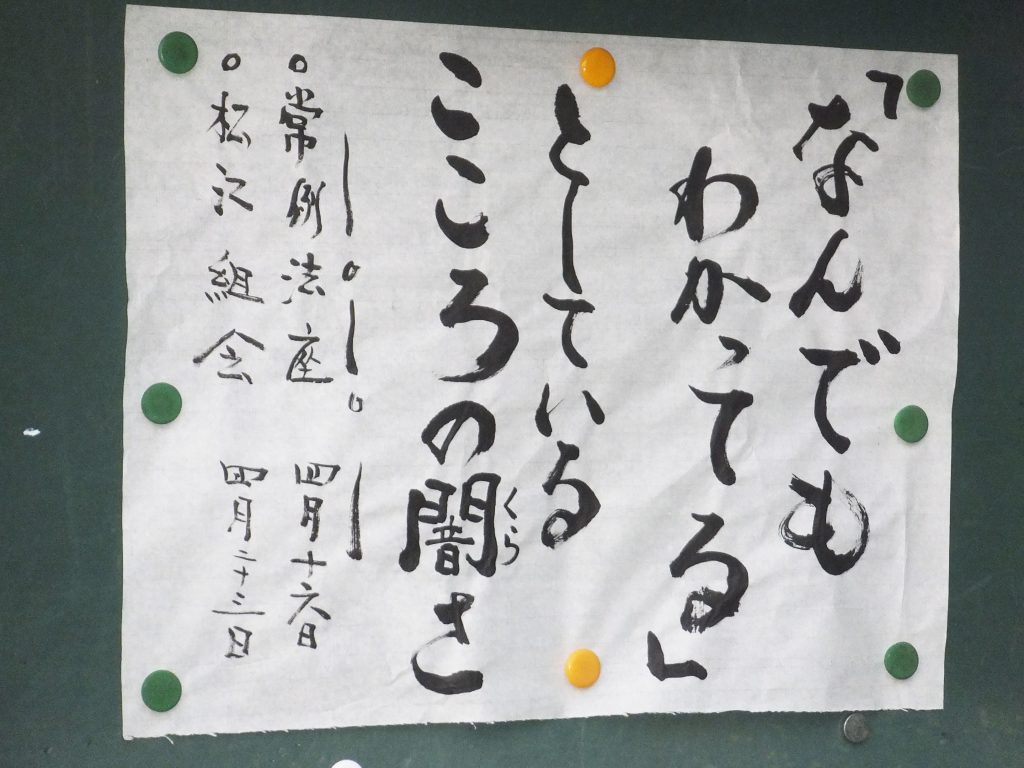 「なんでも
わかってる」
としている
こころの闇さ
くら
。常例法座 四月十六日
。松江組会 四月二十三日